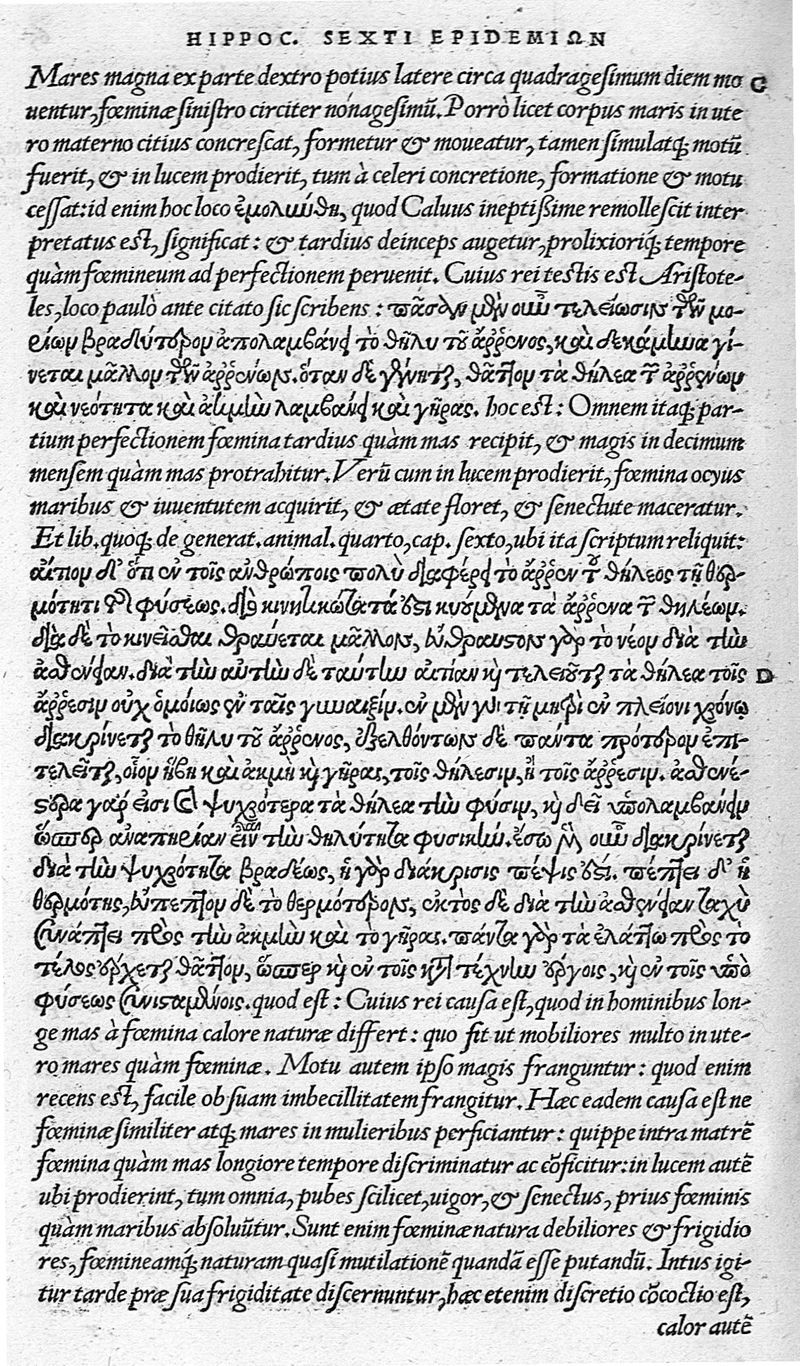 HIPPOC. SEXTI EPIDEMIΩN
Mares magna ex parte dextro potius latere circa quadragesimum diem mo C
uentur, fœminæ sinistro circiter nonagesimũ. Porrò licet corpus maris in ute
ro materno citius concrescat, formetur & moueatur, tamen simulatq; motũ
fuerit, & in lucem prodierit, tum à celeri concretione, formatione & motu
cessat: id enim hoc loco ἐμολύνθη, quod Caluus ineptissime remollescit inter
pretatus est, significat: & tardius deinceps augetur, prolixioriq́; tempore
quàm fœmineum ad perfectionem peruenit. Cuius rei testis est Aristote-
les, loco paulò ante citato sic scribens: πᾶσαν μὲν οὖν τελείωσιν τῶν μο-
ρίων βραδύτερον ἀπολαμβάνει τὸ θῆλυ τοῦ ἄῤῥενος, καὶ δεκάμηνα γί-
νεται μᾶλλον τῶν ἀῤῥένων. ὅταν δὲ γένηται, θᾶττον τὰ θήλεα τῶν ἀῤῥένων
καὶ νεότητα καὶ ἀκμὴν λαμβάνει καὶ γῆρας. hoc est: Omnem itaq; par-
tium perfectionem fœmina tardius quàm mas recipit, & magis in decimum
mensem quàm mas protrahitur. Verũ cum in lucem prodierit, fœmina ocyus
maribus & iuuentutem acquirit, & ætate floret, & senectute maceratur.
Et lib. quoq; de generat. animal. quarto, cap. sexto, ubi ita scriptum reliquit:
αἴτιον δ' ὅτι ἐν τοῖς ἀνθρώποις πολὺ διαφέρει τὸ ἄῤῥεν τοῦ θήλεος τῇ θερ-
μότητι τῆς φύσεως. διὸ κινητικώτατά ἐστι κυούμενα τὰ ἄῤῥενα τῶν θηλέων.
διὰ δὲ τὸ κινεῖσθαι θραύεται μᾶλλον, εὔθραυστον γὰρ τὸ νέον διὰ τὴν
ἀσθένειαν. διὰ τὴν αὐτὴν δὲ ταύτην αἰτίαν καὶ τελειοῦται τὰ θήλεα τοῖς D
ἄῤῥεσιν οὐχ ὁμοίως ἐν ταῖς γυναιξίν. ἐν μὲν γὰρ τῇ μητρὶ ἐν πλείονι χρόνῳ
διακρίνεται τὸ θῆλυ τοῦ ἄῤῥενος, ἐξελθόντων δὲ πάντα πρότερον ἐπι-
τελεῖται, οἷον ἥβη καὶ ἀκμὴ καὶ γῆρας, τοῖς θήλεσιν, ἢ τοῖς ἄῤῥεσιν. ἀσθενέ-
στερα γάρ εἰσι καὶ ψυχρότερα τὰ θήλεα τὴν φύσιν, καὶ δεῖ ὑπολαμβάνειν
ὥσπερ ἀναπηρίαν εἶναι τὴν θηλύτητα φυσικήν. ἔσω μὲν οὖν διακρίνεται
διὰ τὴν ψυχρότητα βραδέως, ἡ γὰρ διάκρισις πέψις ἐστί. πέττει δ' ἡ
θερμότης, εὔπεπτον δὲ τὸ θερμότερον, ἐκτὸς δὲ διὰ τὴν ἀσθένειαν ταχὺ
συνάπτει πρὸς τὴν ἀκμὴν καὶ τὸ γῆρας. πάντα γὰρ τὰ ἐλάττω πρὸς τὸ
τέλος ἔρχεται θᾶττον, ὥσπερ καὶ ἐν τοῖς κατὰ τέχνην ἔργοις, καὶ ἐν τοῖς ὑπὸ
φύσεως συνισταμένοις. quod est: Cuius rei causa est, quod in hominibus lon-
ge mas à fœmina calore naturæ differt: quo fit ut mobiliores multo in ute-
ro mares quàm fœminæ. Motu autem ipso magis franguntur: quod enim
recens est, facile ob suam imbecillitatem frangitur. Hæc eadem causa est ne
fœminæ similiter atq; mares in mulieribus perficiantur: quippe intra matrẽ
fœmina quàm mas longiore tempore discriminatur ac cõficitur: in lucem autẽ
ubi prodierint, tum omnia, pubes scilicet, uigor, & senectus, prius fœminis
quàm maribus absoluũtur. Sunt enim fœminæ natura debiliores & frigidio
res, fœmineamq́; naturam quasi mutilationẽ quandã esse putandũ. Intus igi-
tur tarde præ sua frigiditate discernuntur, hæc etenim discretio cõcoctio est,
calor autẽ